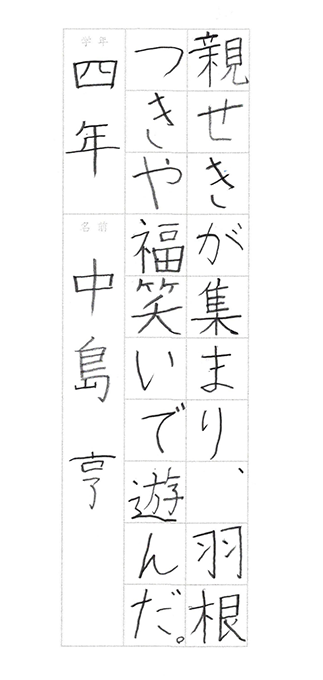 親せきが集まり、羽根
つきや福笑いで遊んだ。
学年
四年
名前
中島亨